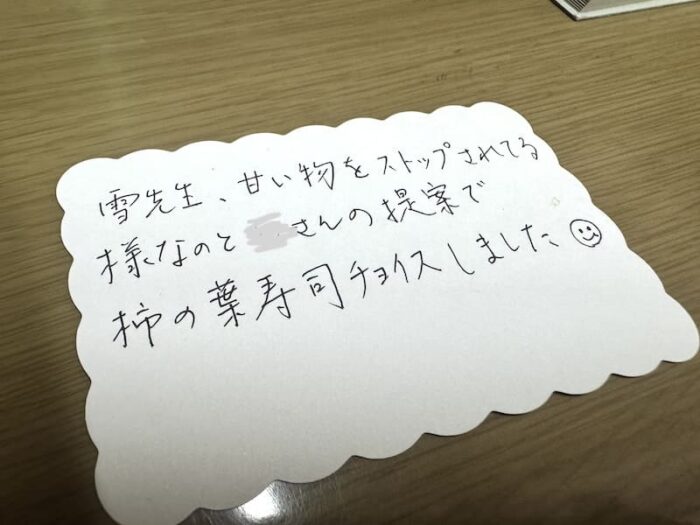 雪先生、甘い物をストップされてる
様なのと さんの提案で
柿の葉寿司チョイスしました